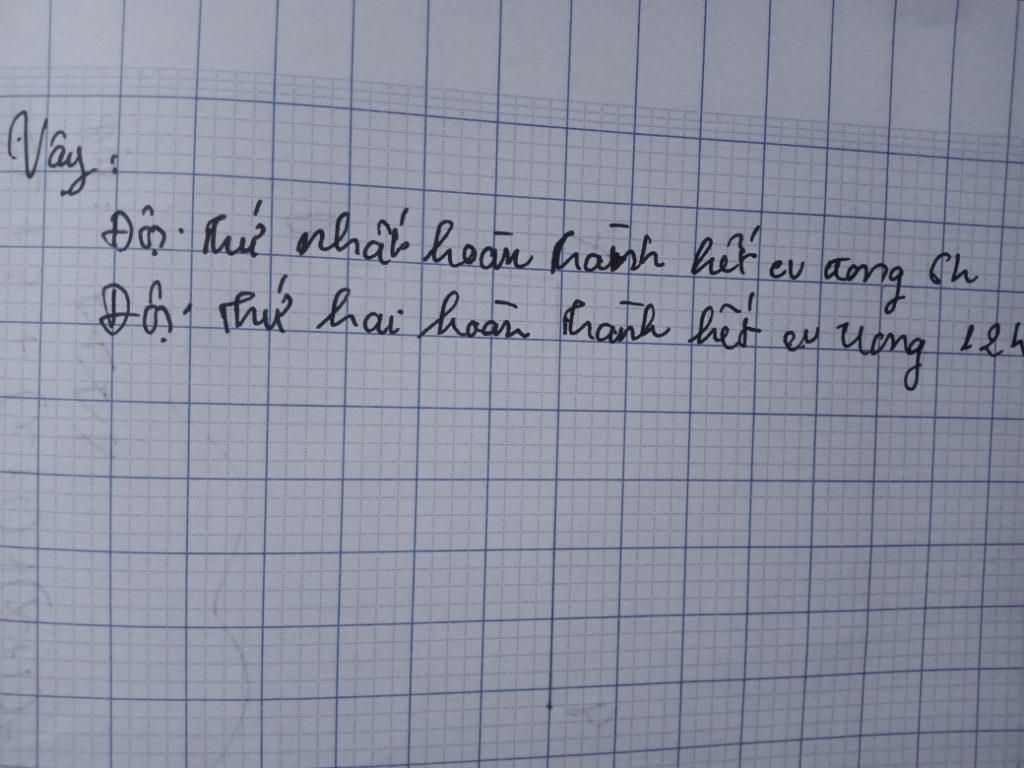 Vậy:
Đội thứ nhất hoàn thành hết cv trong 6h
Đội thứ hai hoàn thành hết cv trong 12h